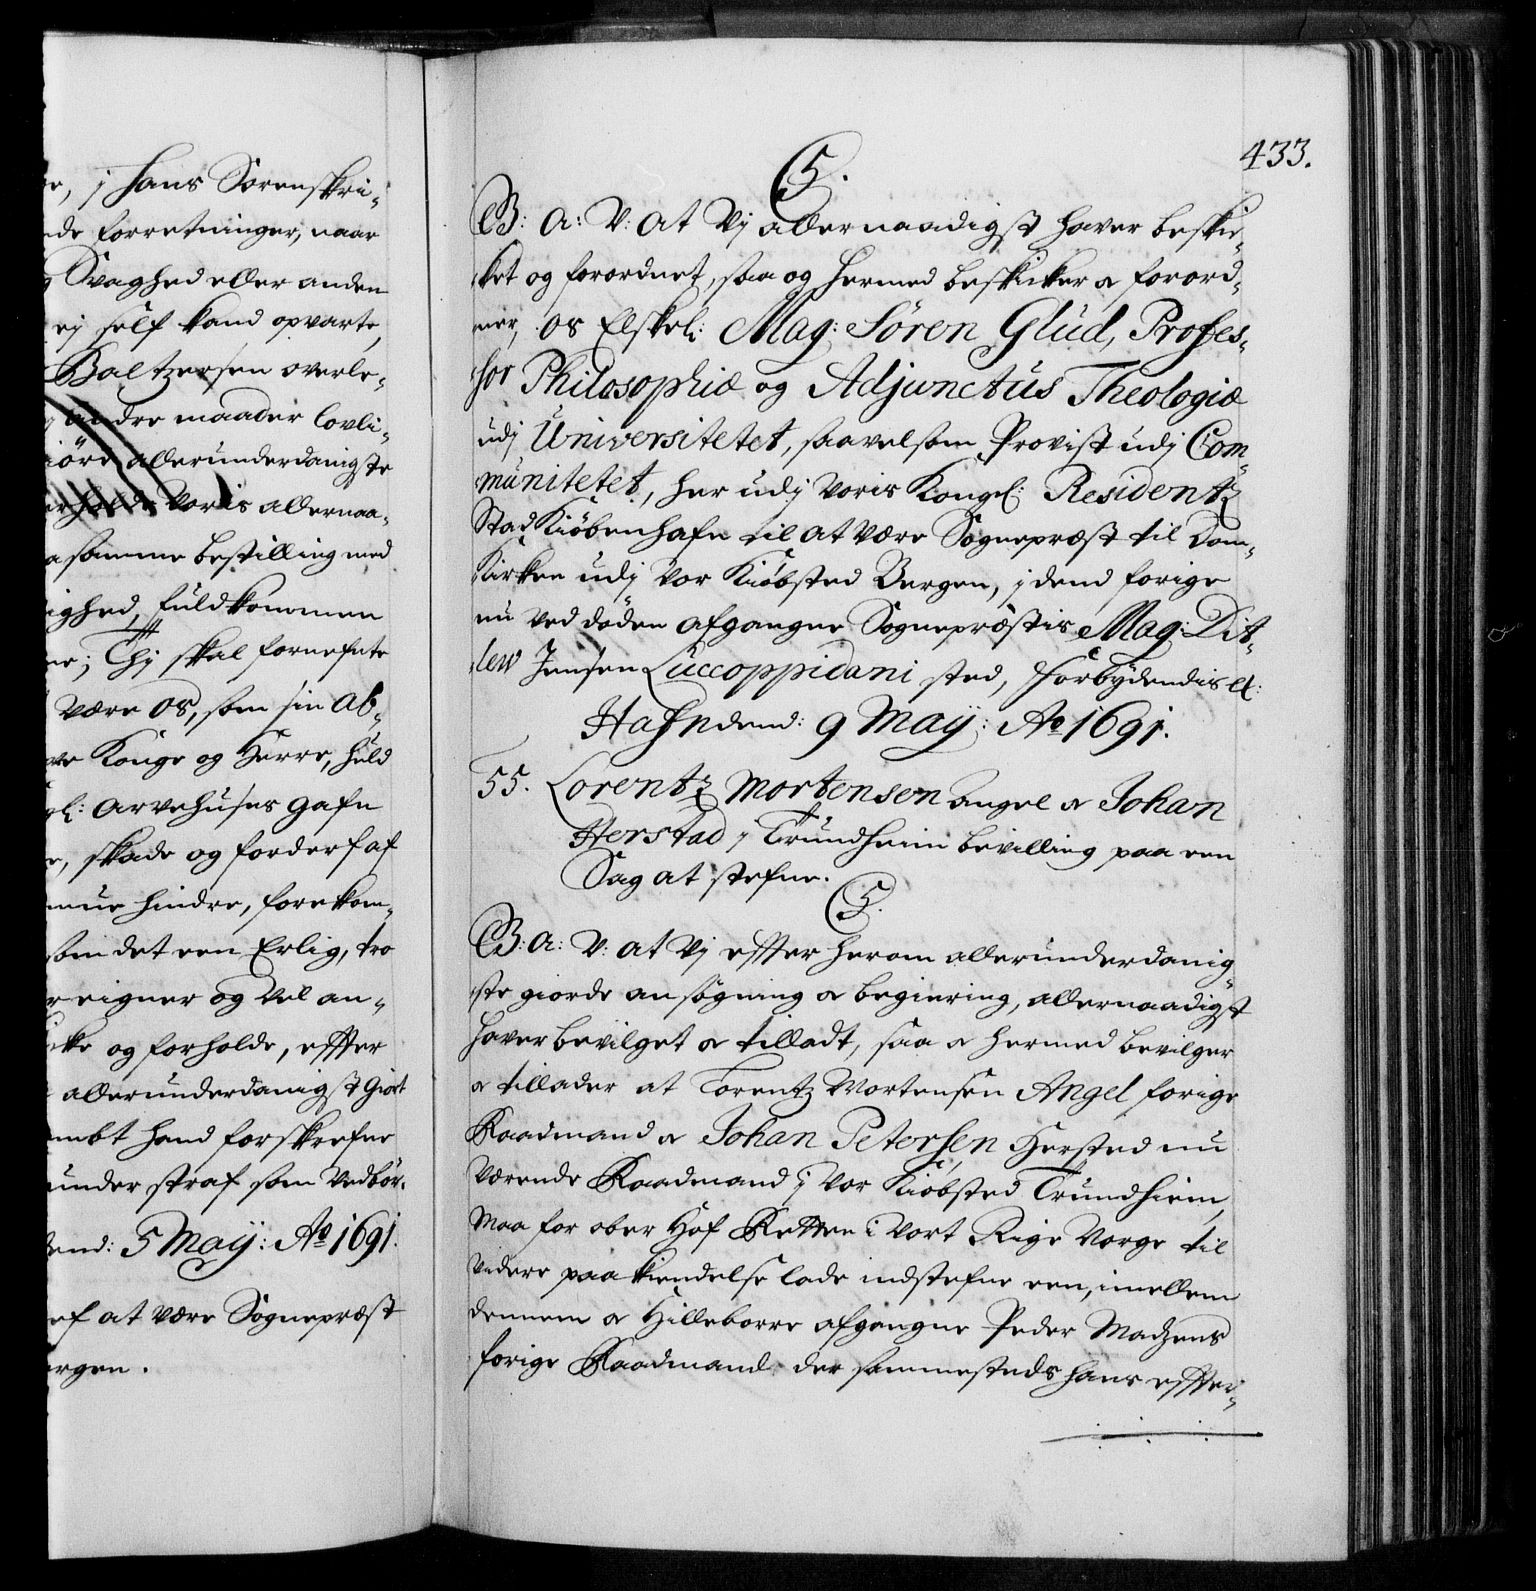 e, j hans Sorenskri-
nde forretninger, naar
g Svaghed eller anden
ej self kand opvarte,
Baltzersen overle-
g andre maader lovli-
giöre, allerunderdanigste
erholde Voris allernaa-
a samme bestilling med
ighed, fuldkommen
ne; Thj skal fornefnte
Være OS, som sin Ab-
ve Konge og Herre, huld
gl: Arvehuses gafn
e, skade og forderf af
mue hindre, forekom-
som det een Erlig, tro
r eigner og Vel an-
icke og forholde, effter
allerunderdanigst Giort
embt hand forskrefne
under straf som Vedbör.
dend: 5 Maÿ: Ao 1691.
ef at være Sognepræst
ergen.
433.
C5.
G: A: V: At Vj allernaadigst hafver beskic-
ket og forordnet, saa og hermed beskicker og forord-
ner, OS Elskel: Mag: Sören Glud, Profes-
sor Philosophiæ og Adjunctus Theologiæ
udj Universitetet, saavelsom Provist udj Com-
munitetet, her udj Voris Kongel: Residentz
Stad Kiöbenhafn til at være Sognepræst til Dom-
Kirken udj Vor Kiöbsted Bergen, j dend forige
nu ved döden afgangne Sognepræstis Mag: Dit-
lew Jensen Luccoppidani sted, Forbydendis etc:
Hafn dend: 9 Maÿ: Ao 1691.
55. Lorentz Mortensen Angel og Johan
Herstad j Trundheim bevilling paa een
Sag at stefne.
C5.
G: A: V: At Vj effter herom allerunderdanig-
ste giorde ansögning og begiering, allernaadigst
hafver bevilget og tilladt, saa og hermed bevilger
og tillader at Lorentz Mortensen Angel forige
Raadmand og Johan Petersen Hersted nu
Værende Raadmand j Vor Kiöbsted Trundhiem,
Maa for ober Hof Retten i Vort Rige Norge til
Videre paakiendelse lade indstefne een, imellem
dennem og Hilleborre afgangne Peder Madzens
forige Raadmand der sammesteds hans effter-